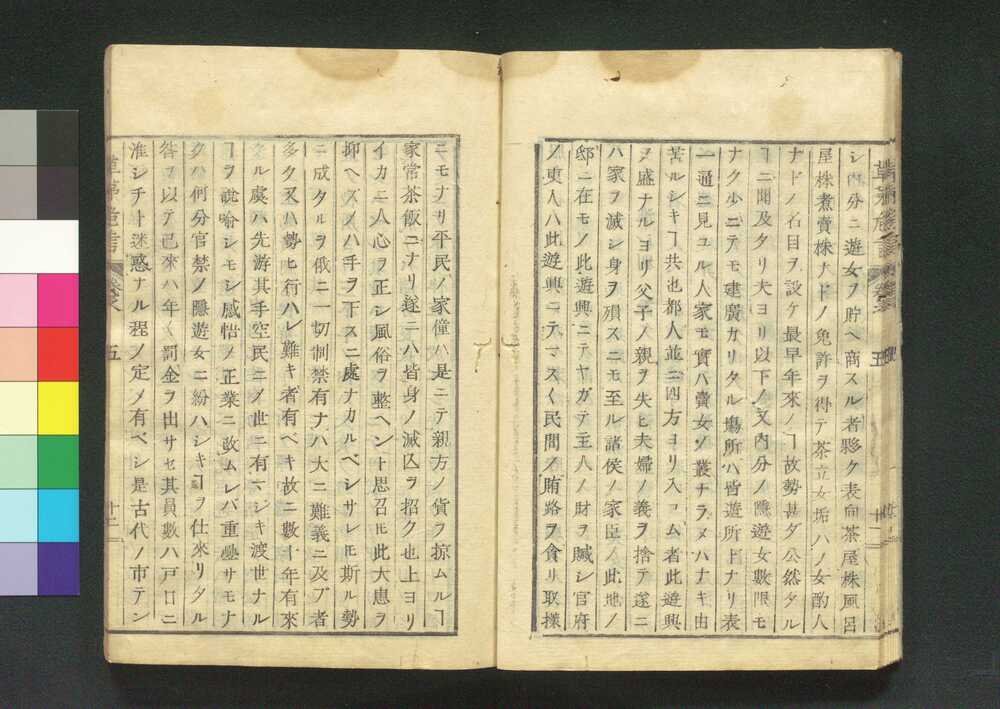 シ内分ニ遊女ヲ貯ヘ商スル者夥ク表向茶屋株風呂
屋株煮賣株ナドノ免許ヲ得テ茶立女垢ハノ女酌人
ナドノ名目ヲ設ケ最早年來ノヿ故勢甚ダ公然タル
ヿニ聞及タリ夫ヨリ以下ノ又内分ノ隱遊女數限モ
ナク少ニテモ建廣ガリタル場所ハ皆遊所トナリ表
一通ニ見ユル人家モ實ハ賣女ノ叢ナラヌハナキ由
苦ルシキヿ共也都人並ニ四方ヨリ入コム者此遊興
ヲ盛ナルヨリ父子ノ親ヲ失ヒ夫婦ノ義ヲ捨テ遂ニ
ハ家ヲ滅シ身ヲ殞スニモ至ル諸侯ノ家臣ノ此地ノ
邸ニ在モノ此遊興ニテヤガテ主人ノ財ヲ贓シ官府
ノ吏人ハ此遊興ニテマスく民間ノ賄路ヲ貪リ取樣
ニモナリ平民ノ家僮ハ是ニテ親方ノ貨ヲ掠ムルヿ
家常茶飯ニナリ遂ニハ皆身ノ滅亡ヲ招ク也上ヨリ
イカニ人心ヲ正シ風俗ヲ整ヘント思召ヒ此大患ヲ
抑ヘズメハ手ヲ下スニ處ナカルベシサレ𪜈斯ル勢
ニ成タルヲ俄ニ一切制禁有ナハ大ニ難義ニ及ブ者
多ク又ハ勢ヒ行ハレ難キ者有ベキ故ニ數十年有來
タル虞ハ先游其手空民ニメ世ニ有マシキ渡世ナル
ヿヲ說喻シモシ感悟ノ正業ニ改ムレバ重疊サモナ
クハ何分官禁ノ隱遊女ニ紛ハシキヿヲ仕來リタル
咎ヲ以テ已來ハ年〱罰金ヲ出サセ其員數ハ戸口ニ
准シチト迷惑ナル程ノ定メ有ベシ是古代ノ市テン
草茅危言
卷
五
十二